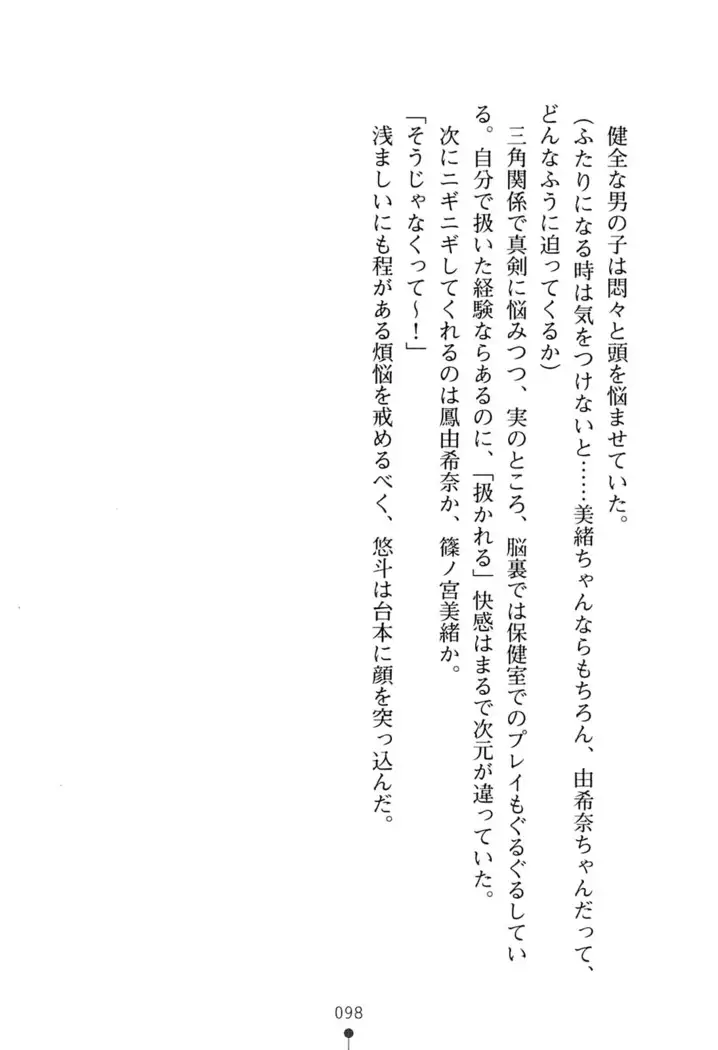 健全な男の子は悶々と頭を悩ませていた。
(ふたりになる時は気をつけないと……美緒ちゃんならもちろん、由希奈ちゃんだって、
どんなふうに迫ってくるか)
三角関係で真剣に悩みつつ、実のところ、脳裏では保健室でのプレイもぐるぐるしてい
る。自分で扱いた経験ならあるのに、「扱かれる」快感はまるで次元が違っていた。
次にニギニギしてくれるのは鳳由希奈か、篠ノ宮美緒か。
「そうじゃなくって～！」
浅ましいにも程がある煩悩を戒めるべく、悠斗は台本に顔を突っ込んだ。
098